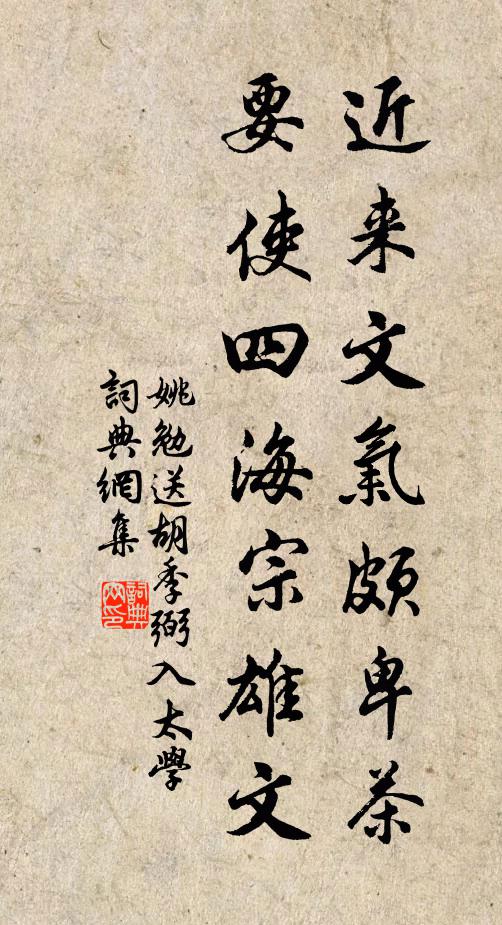 近来文氣頗卑茶
要使四海宗雄文
姚勉送胡季弼入太學
詞典網集
詞典网印